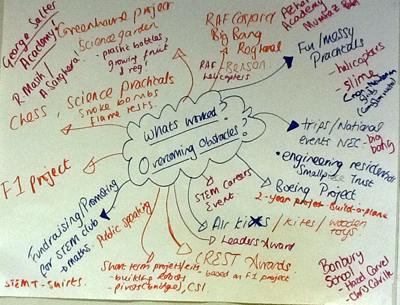 George Salter
Academy
R. Mash
Greenhouse Project
Science garden
- plastic bottles,
growing fruit
& veg.
RAF Cosford
Big Bang
Regional
RAF - Benson.
helicopters
Academy
Fun/messy
Practicals
- helicopters
- slime
Chess, Science Practicals
smoke bombs
flame tests.
Whats worked?
Overcoming Obstacles?
trips/National
events NEC - big
bang
• engineering residentials
Smallpiece Trust
F1 Project
Boeing Project
2-year project build-a-plane
STEM Careers
Event
Fundraising/Promoting
for STEM club
• maths
• Public speaking
STEM T-Shirts
Air kixs / kites / wooden
toys
Leaders Award
CREST Awards
- based on F1 project
Short term projects/kits
- building robots
- pivots (bridges), CSI
Banbury
School